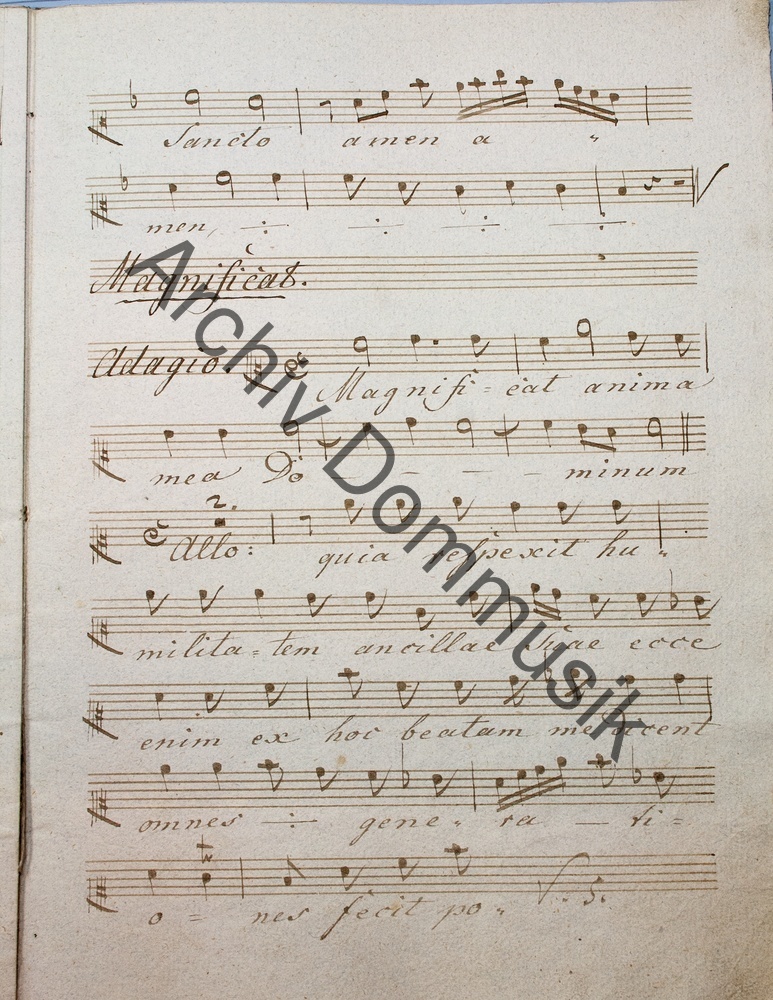 Sancto amen a "
men, ÷ ÷ ÷ ÷
Magnificat.
Adagio Magnifi = cat anima
mea Do - - - minum
2.
Allo: quia respexit hu "
milita = tem ancillae suae ecce
enim ex hoc beatam me dicent
omnes ÷ gene " ra — ti =
o = nes fecit po " V. S.
Archiv Dommusik